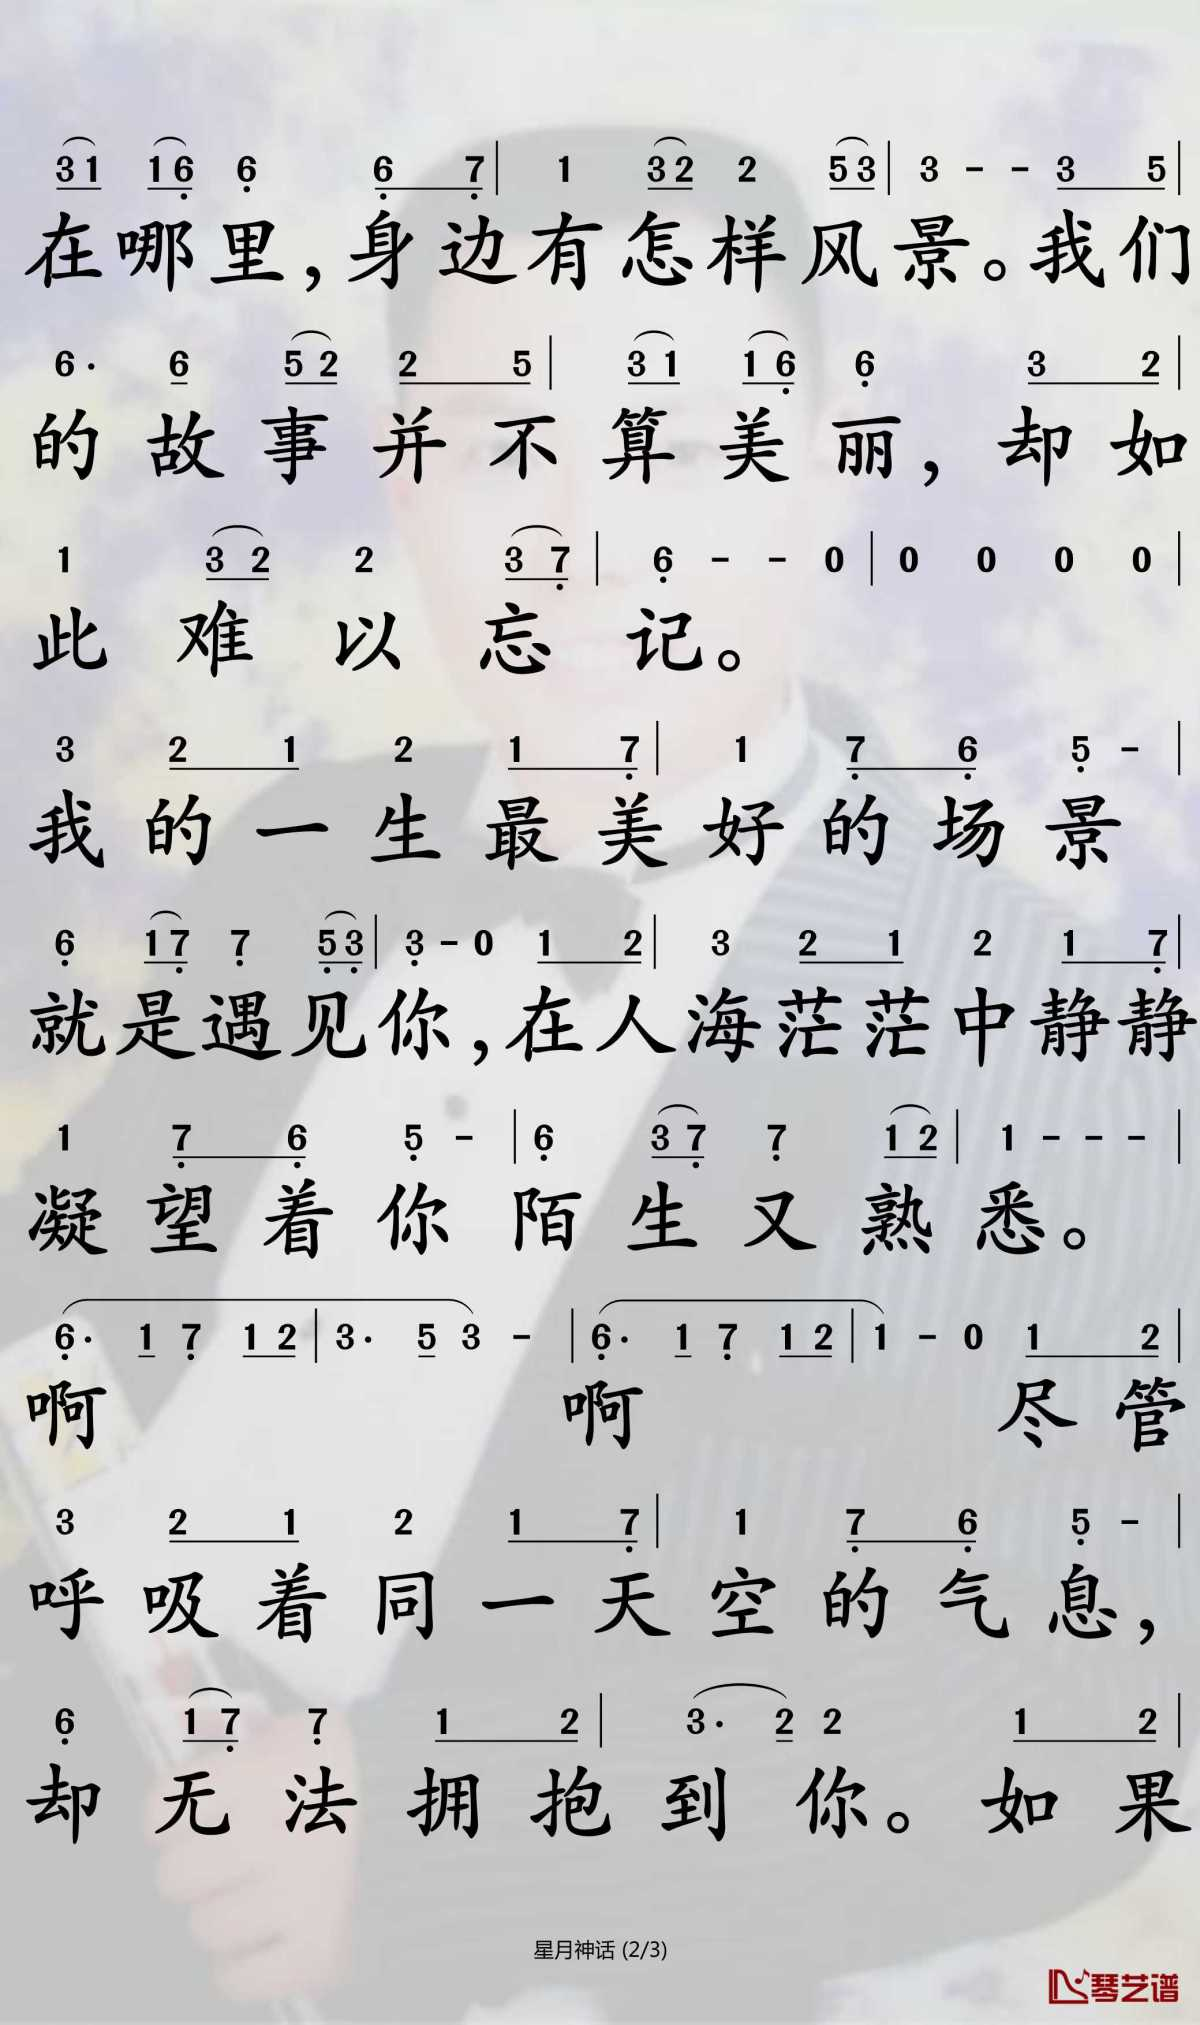 31 16 6 6 7 | 1 32 2 53 | 3 - - 3 5 |
在哪里,身边有怎样风景。我们
6· 6 52 2 5 | 31 16 6 3 2 |
的故事并不算美丽,却如
1 32 2 37 | 6 - - 0 | 0 0 0 0 |
此难以忘记。
3 2 1 2 1 7 | 1 7 6 5 - |
我的一生最美好的场景
6 17 7 53 | 3 - 0 1 2 | 3 2 1 2 1 7 |
就是遇见你,在人海茫茫中静静
1 7 6 5 - | 6 37 7 12 | 1 - - - |
凝望着你陌生又熟悉。
6· 1 7 12 | 3· 5 3 - | 6· 1 7 12 | 1 - 0 1 2 |
啊 啊 尽管
3 2 1 2 1 7 | 1 7 6 5 - |
呼吸着同一天空的气息,
6 17 7 1 2 | 3· 2 2 1 2 |
却无法拥抱到你。如果
星月神话 (2/3)
琴艺谱